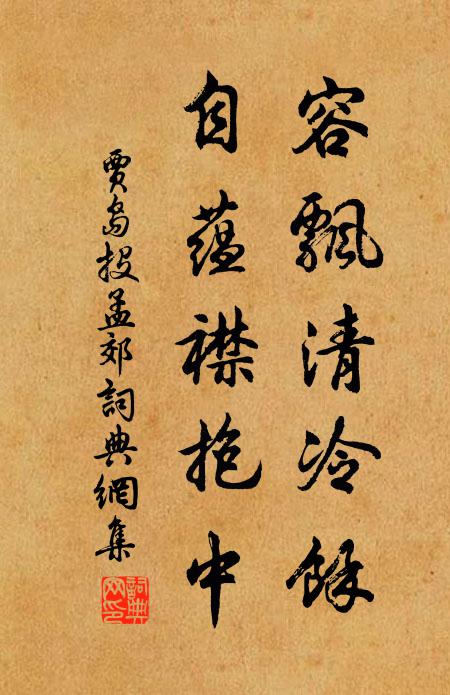 容飄清冷餘
自蘊襟抱中
賈島投孟郊詞典網集
詞典
网印